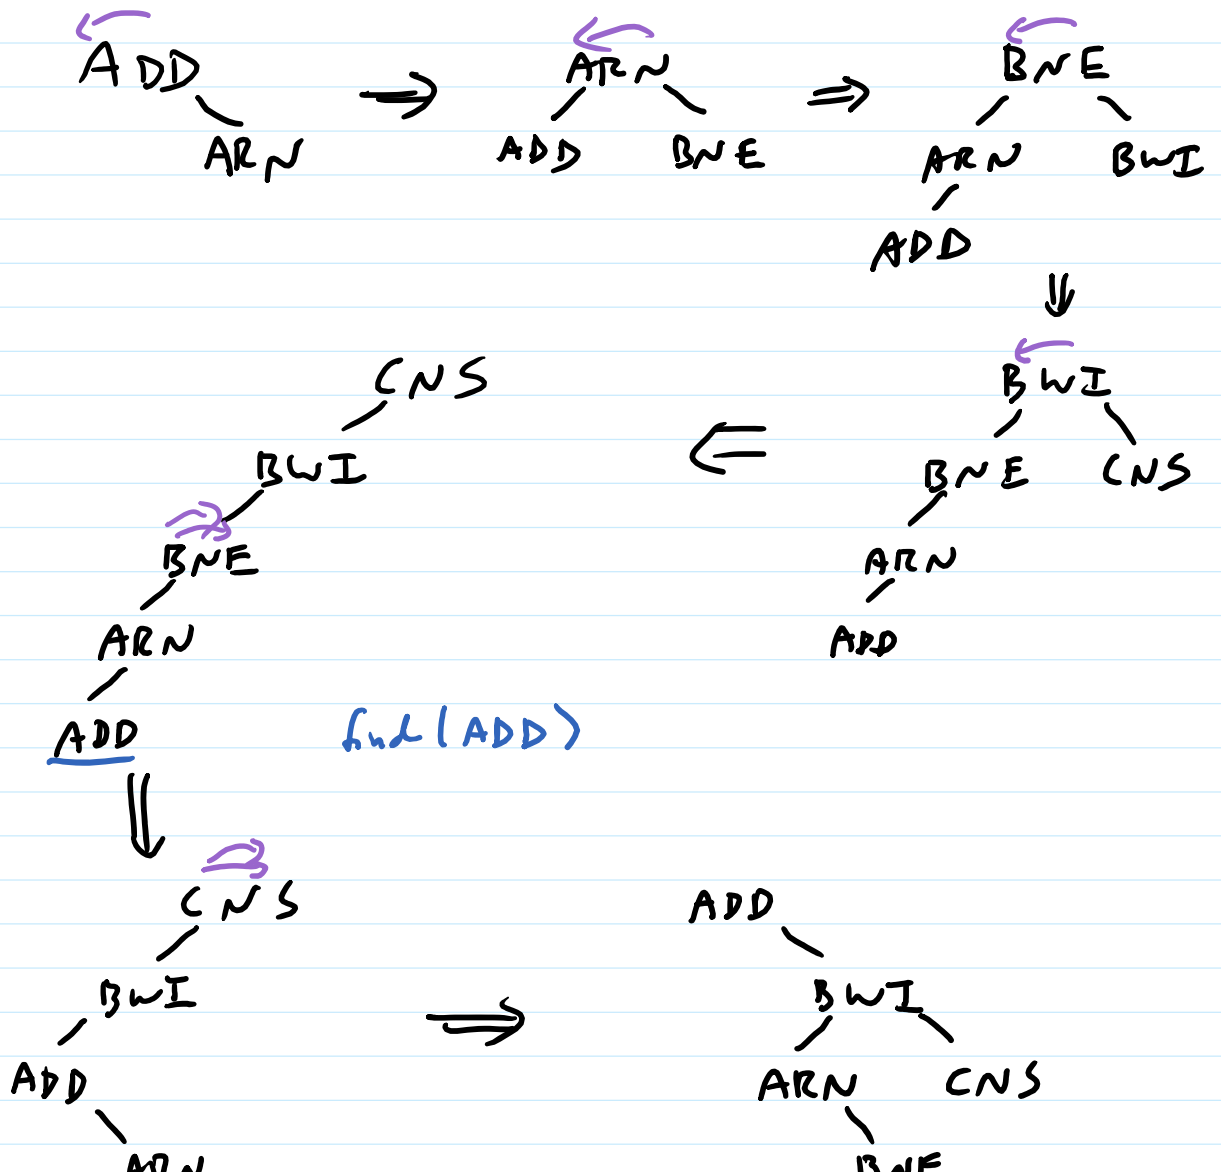 ADD
ARN
ARN
ADD BNE
BNE
ARN BWI
ADD
BWI
BNE CNS
ARN
ADD
CNS
BWI
BNE
ARN
ADD
find(ADD)
CNS
BWI
ADD
ARN
ADD
BWI
ARN CNS
BNE